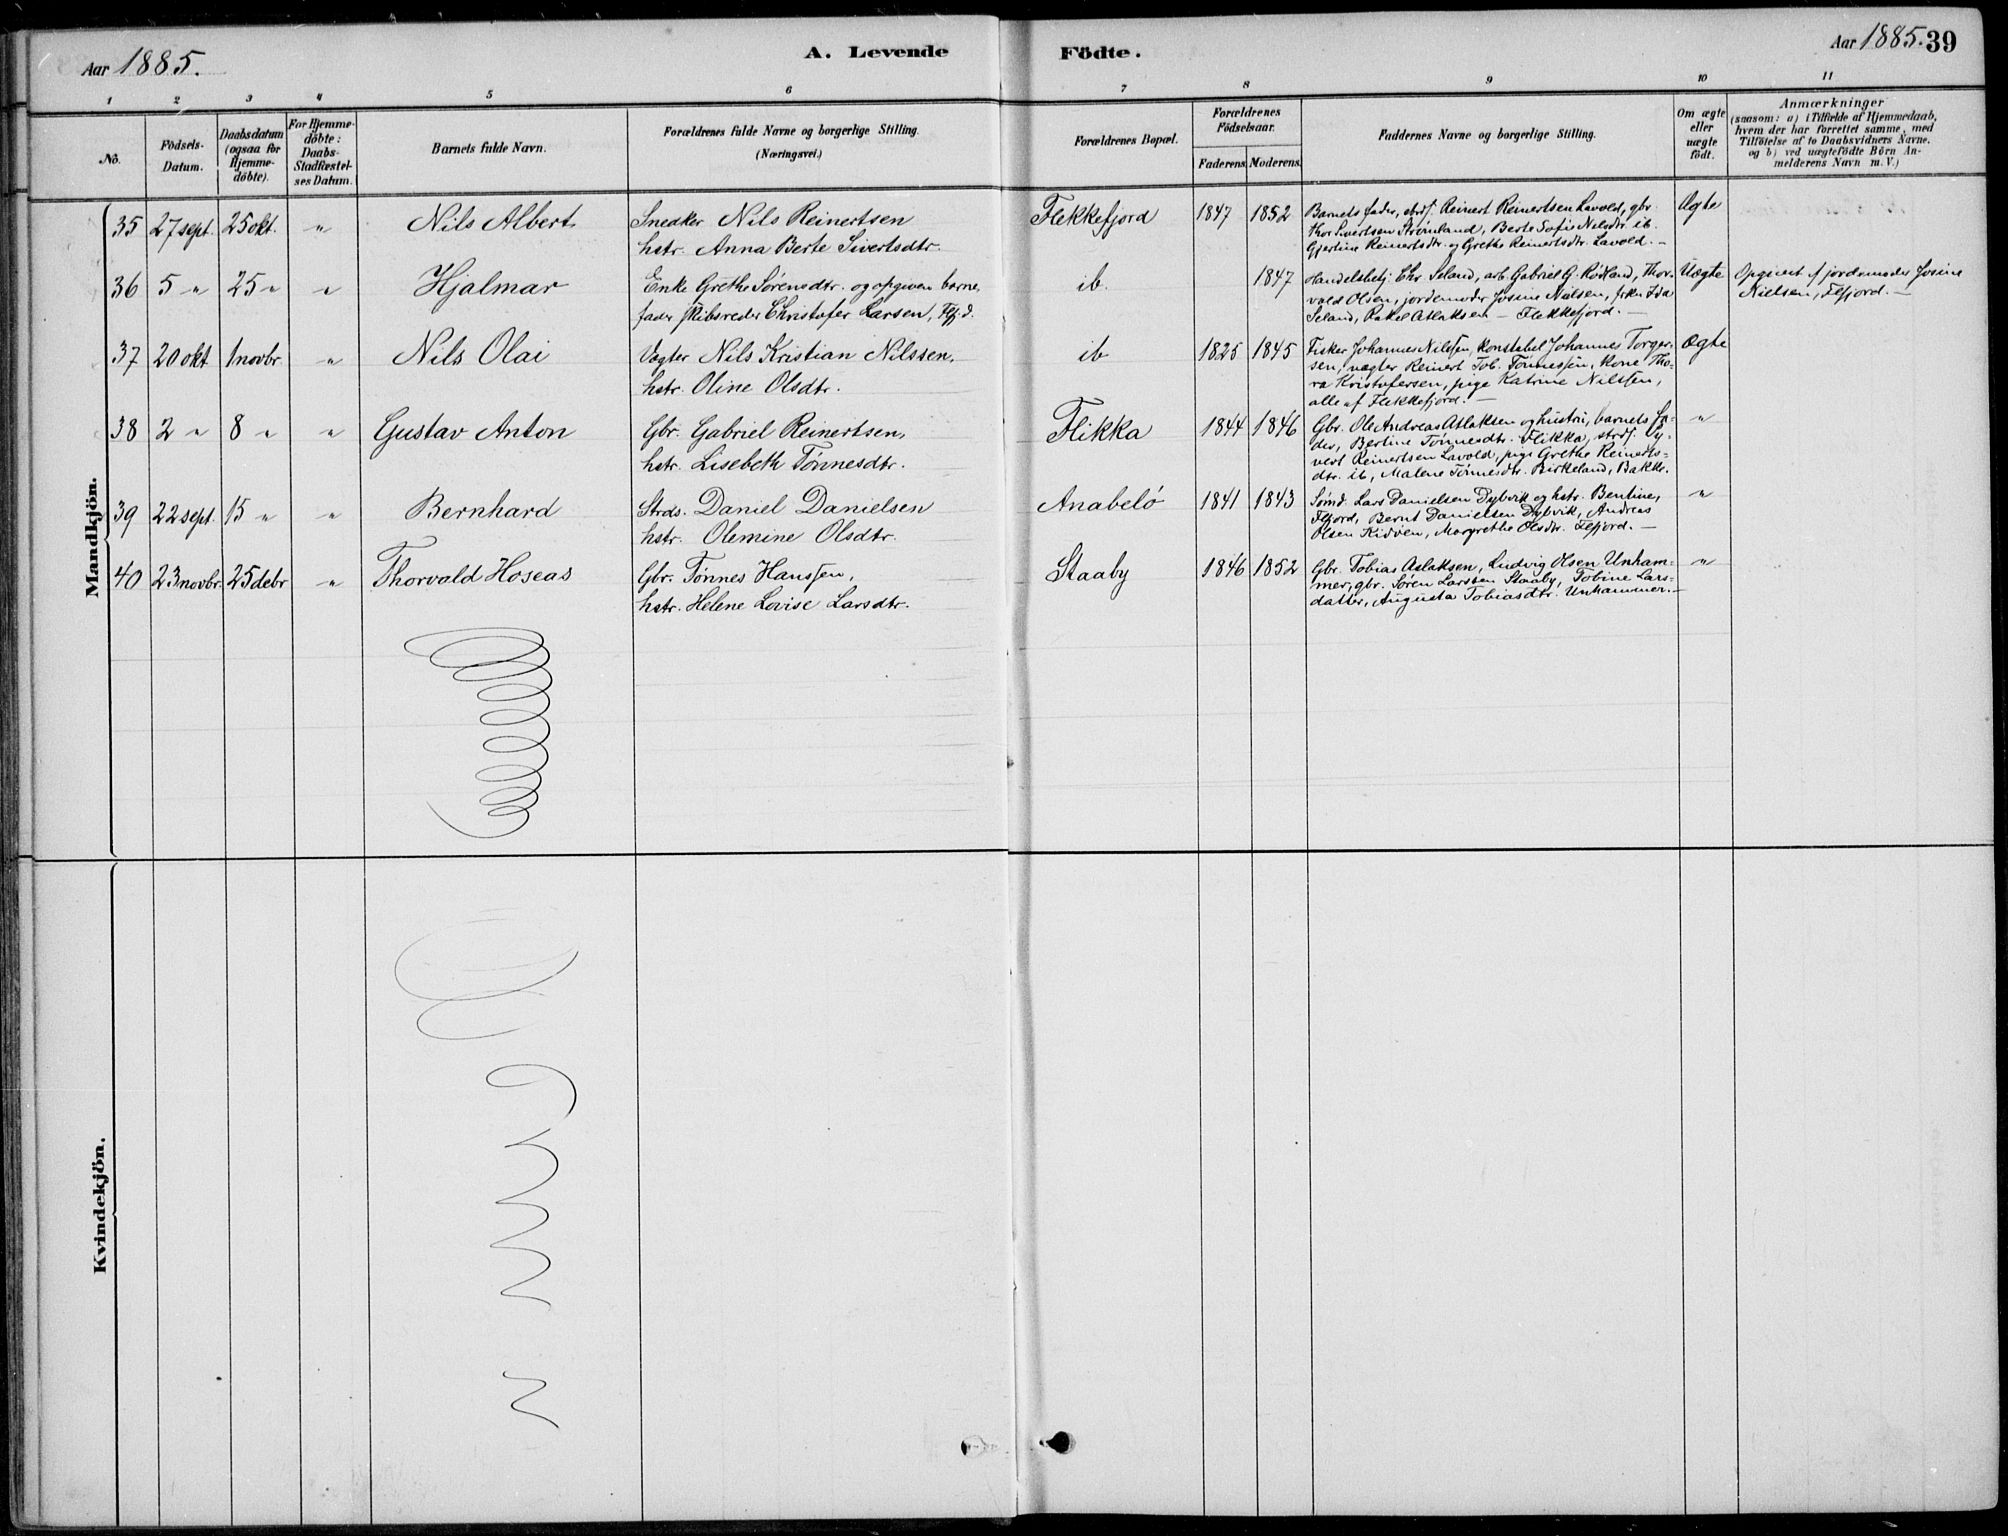 Aar 1885.
A. Levende
Födte.
Aar 1885. 39
1 2 3 4 5 6 7 8 9 10 11
No.
Födsels-
Datum.
Daabsdatum
(ogsaa for
Hjemme-
döbte).
For Hjemme-
döbte:
Daabs-
Stadfæstel-
ses Datum.
Barnets fulde Navn.
Forældrenes fulde Navne og borgerlige Stilling.
(Næringsvei.)
Forældrenes Bopæl.
Forældrenes
Födselsaar.
Faderens. Moderens.
Faddernes Navne og borgerlige Stilling.
Om ægte
eller
uægte
födt.
Anmærkninger
(saasom: a) i Tilfælde af Hjemmedaab,
hvem der har forrettet samme, med
Tilföielse af to Daabsvidners Navne.
og b) ved uægtefödte Börn An-
melderens Navn m. V.)
Mandkjön.
35 27 sept. 25 okt. " Nils Albert
Snedker Nils Reinertsen
hstr. Anna Berte Sivertsdtr.
Flekkefjord 1847 1852
Barnets fader, strds. Reinert Reinertsen Lavold, gbr.
Thor Sivertsen Strømland, Berte Sofie Nilsdtr. ib.
Gjertine Reinertsdtr. og Grethe Reinertsdtr. Lavold. —
Ægte
36 5 " 25 " " Hjalmar
Enke Grethe Sørensdtr. og opgiven barne-
fader skibsreder Christofer Larsen, Flfj.d.
ib. 1847
Handelsbetj. Chr. Seland, arb. Gabriel G. Rødland, Thor-
vald Olsen, jordemoder Josine Nielsen, frkn Ida
Seland, Rakel Atlaksen — Flekkefjord. —
Uægte
Opgivet af jordemoder Josine
Nielsen, Flfjord. —
37 20 okt 1 novbr. " Nils Olai
Vægter Nils Kristian Nilssen,
hstr. Oline Olsdtr.
ib 1825 1845
Fisker Johannes Nilssen, konstabel Johannes Torger-
sen, vægter Reinert Tob. Tønnessen, kone Tho-
ra Kristofersen, pige Katrine Nilssen,
alle af Flekkefjord. —
Ægte
38 2 " 8 " " Gustav Anton
Gbr. Gabriel Reinertsen,
hstr. Lisebeth Tønnesdtr.
Flikka 1844 1846
Gbr. Ole Andreas Atlaksen og hustru, barnets fa-
der, Bertine Tønnesdtr. Flikka, strds. Sy-
vert Reinertsen Lavold, pige Grethe Reinerts-
dtr. ib, Malene Tønnesdtr. Birkeland, Bakke.
"
39 22 sept. 15 " " Bernhard
Strds. Daniel Danielsen
hstr. Olemine Olsdtr.
Anabelø 1841 1843
Sømd. Lars Danielsen Dybvik og hstr. Bentine,
Flfjord, Bernt Danielsen Dybvik, Andreas
Olsen Kidøen, Margrethe Olsdtr. Flfjord. —
"
40 23 novbr. 25 debr " Thorvald Hoseas
Gbr. Tønnes Hanssen,
hstr. Helene Lovise Larsdtr.
Staaby 1846 1852
Gbr. Tobias Aslaksen, Ludvig Olsen Unham-
mer, gbr. Søren Larssen Staaby, Tobine Lars-
datter, Augusta Tobiasdtr. Unhammer. —
"
Kvindekjön.